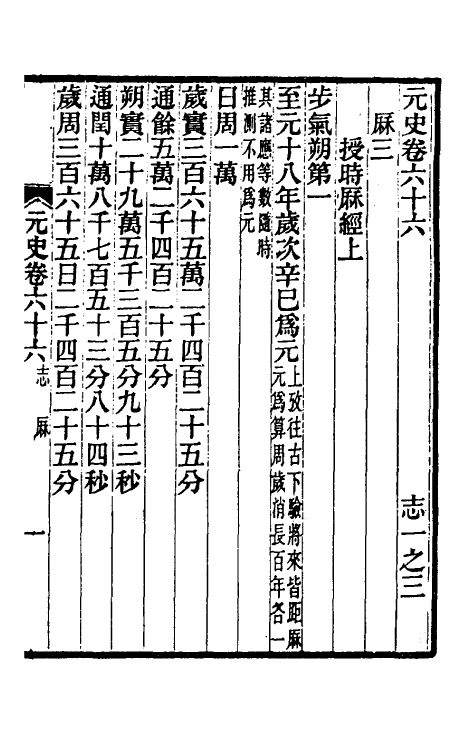 元史卷六十六 志一之三
厤三
授時厤經上
步氣朔第一
至元十八年歲次辛巳爲元 上攷往古下驗將來皆距厤
元爲算周歲消長百年各一
其諸應等數隨時
推測不用爲元
日周一萬
歲實三百六十五萬二千四百二十五分
通餘五萬二千四百二十五分
朔實二十九萬五千三百五分九十三秒
通閏十萬八千七百五十三分八十四秒
歲周三百六十五日二千四百二十五分
元史卷六十六 志 厤 一